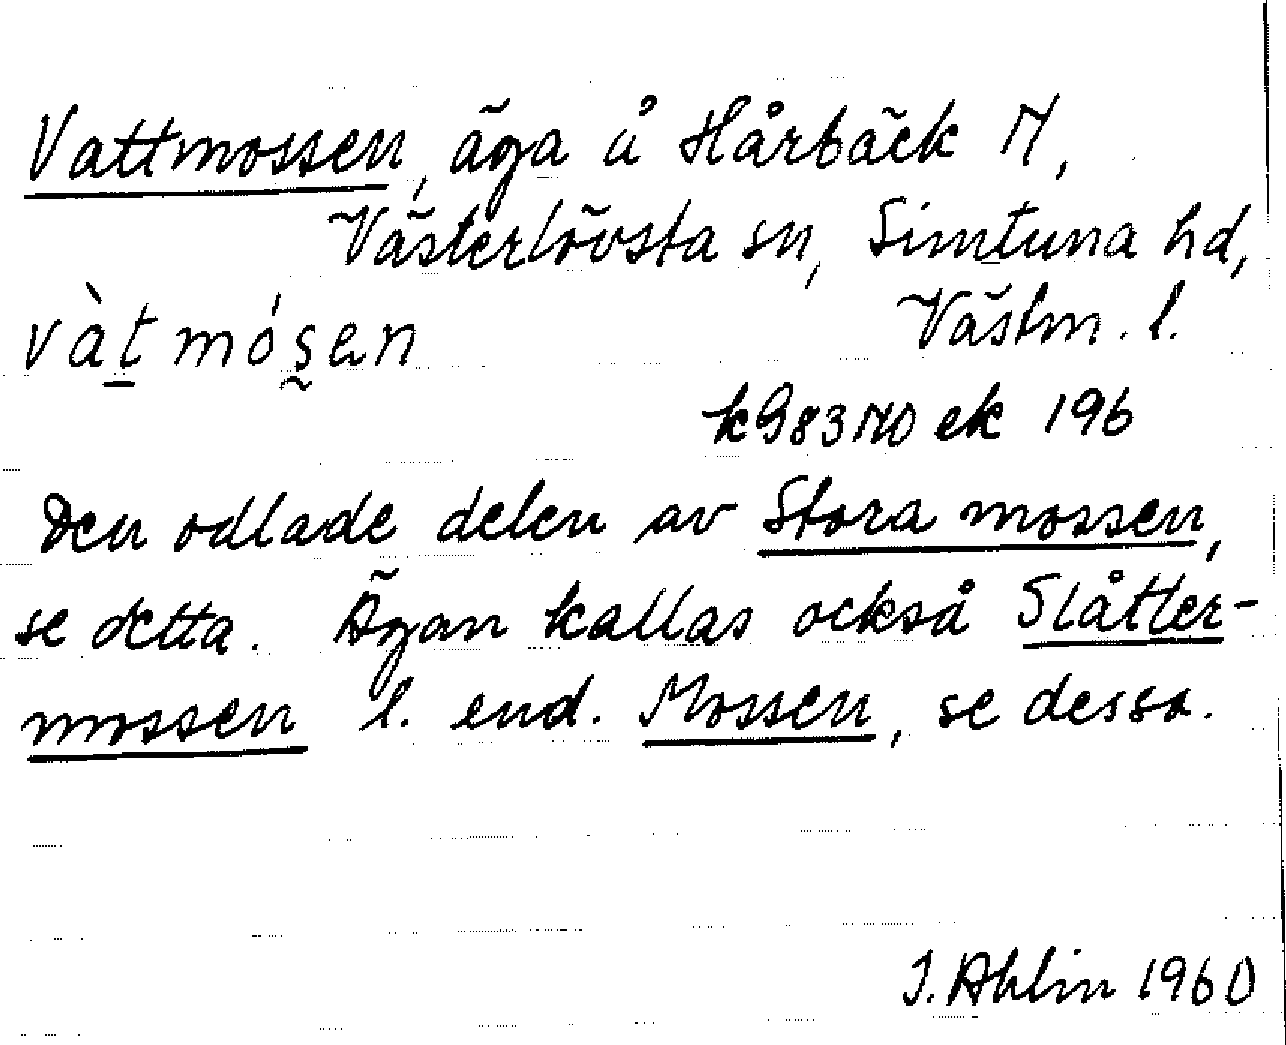 Vattmossen, äga å Hårbäck 17,
Västerlövsta sn, Simtuna hd,
vàt mósen Västm. l.
ek 196
Den odlade delen av Stora mossen,
se detta. Ägan kallas också Slåtter-
mossen l. end. Mossen, se dessa.
I. Ahlin 1960